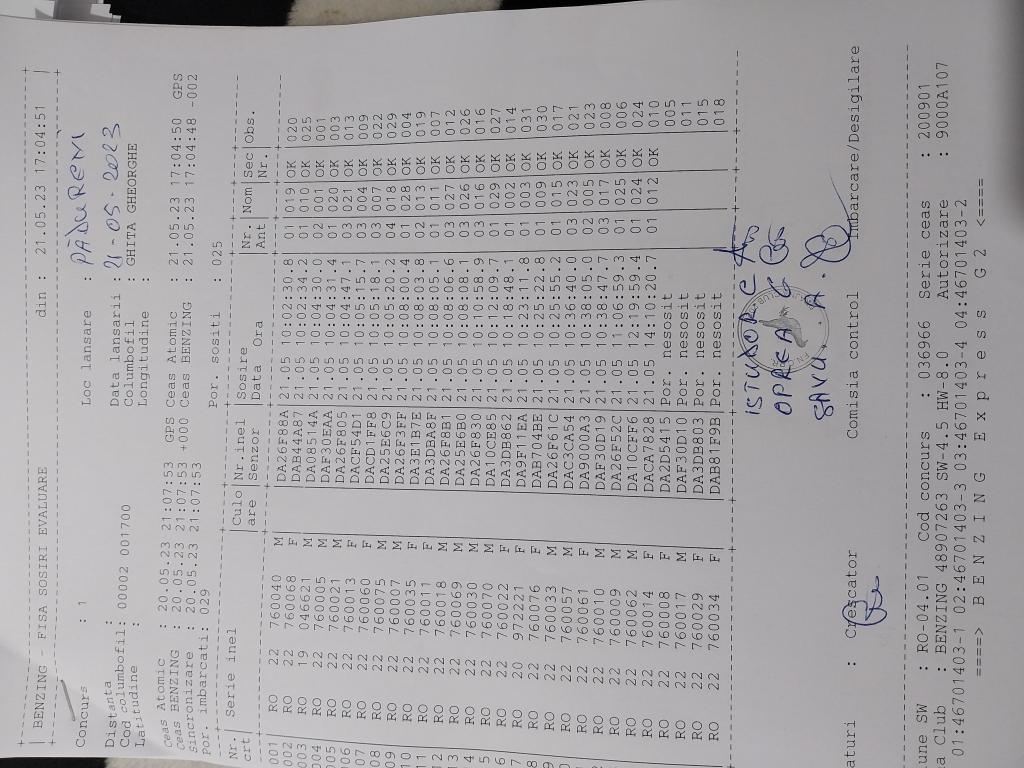 BENZING - FISA SOSIRI EVALUARE din : 21.05.23 17:04:51
Concurs : 1 Loc lansare : PĂDURENI
Distanta : Data lansarii : 21-05-2023
Cod columbofil: 00002 001700 Columbofil : GHITA GHEORGHE
Latitudine : Longitudine :
Ceas Atomic : 20.05.23 21:07:53 GPS Ceas Atomic : 21.05.23 17:04:50 GPS
Ceas BENZING : 20.05.23 21:07:53 +000 Ceas BENZING : 21.05.23 17:04:48 -002
Sincronizare : 20.05.23 21:07:53
Por. imbarcati: 029 Por. sositi : 025
Nr. Serie inel Culo Nr.inel Sosire Nr. Nom Sec Obs.
crt are Senzor Data Ora Ant Nr.
001 RO 22 760040 M DA26F88A 21.05 10:02:30.8 01 019 OK 020
002 RO 22 760068 F DAB44A87 21.05 10:02:34.2 01 010 OK 025
003 RO 19 046621 M DA08514A 21.05 10:04:30.0 02 001 OK 001
004 RO 22 760005 M DAF30EAA 21.05 10:04:31.4 01 020 OK 003
005 RO 22 760021 M DA26F805 21.05 10:04:47.1 03 021 OK 013
006 RO 22 760013 F DACF54D1 21.05 10:05:15.7 03 004 OK 009
07 RO 22 760060 F DACD1FF8 21.05 10:05:18.1 03 007 OK 022
08 RO 22 760075 M DA25E6C9 21.05 10:05:20.2 04 018 OK 029
09 RO 22 760007 M DA26F3FF 21.05 10:08:00.4 01 028 OK 004
10 RO 22 760035 F DA3E1B7E 21.05 10:08:03.8 02 013 OK 019
11 RO 22 760011 F DA3DBA8F 21.05 10:08:05.1 01 011 OK 007
12 RO 22 760018 M DA26F8B1 21.05 10:08:06.6 03 027 OK 012
13 RO 22 760069 M DA25E6B0 21.05 10:08:08.1 03 026 OK 026
4 RO 22 760030 M DA26F830 21.05 10:10:58.9 03 016 OK 016
5 RO 22 760070 M DA10CE85 21.05 10:12:09.7 01 029 OK 027
6 RO 22 760022 F DA3DB862 21.05 10:18:48.1 01 002 OK 014
7 RO 20 972221 F DA9F11EA 21.05 10:23:11.8 01 003 OK 031
8 RO 22 760076 F DAB704BE 21.05 10:25:22.8 01 009 OK 030
RO 22 760033 M DA26F61C 21.05 10:25:55.2 01 015 OK 017
RO 22 760057 M DAC3CA54 21.05 10:36:40.0 03 023 OK 021
RO 22 760061 F DA9000A3 21.05 10:38:05.0 02 005 OK 023
RO 22 760010 M DAF30D19 21.05 10:38:47.7 03 017 OK 008
RO 22 760009 M DA26F52C 21.05 11:06:59.3 01 025 OK 006
RO 22 760062 M DA10CFF6 21.05 12:19:59.4 01 024 OK 024
RO 22 760014 F DACA7828 21.05 14:10:20.7 01 012 OK 010
RO 22 760008 F DA2D5415 Por. nesosit 005
RO 22 760017 M DAF30D10 Por. nesosit 011
RO 22 760029 F DA3DB803 Por. nesosit 015
RO 22 760034 F DAB81F9B Por. nesosit 018
ISTUDOR C
OPREA G
SAVU A.
aturi : Crescator Comisia control Imbarcare/Desigilare
iune SW : RO-04.01 Cod concurs : 036966 Serie ceas : 200901
a Club : BENZING 48907263 SW-4.5 HW-8.0 Autorizare : 9000A107
01:46701403-1 02:46701403-3 03:46701403-4 04:46701403-2
====> B E N Z I N G E x p r e s s G 2 <====